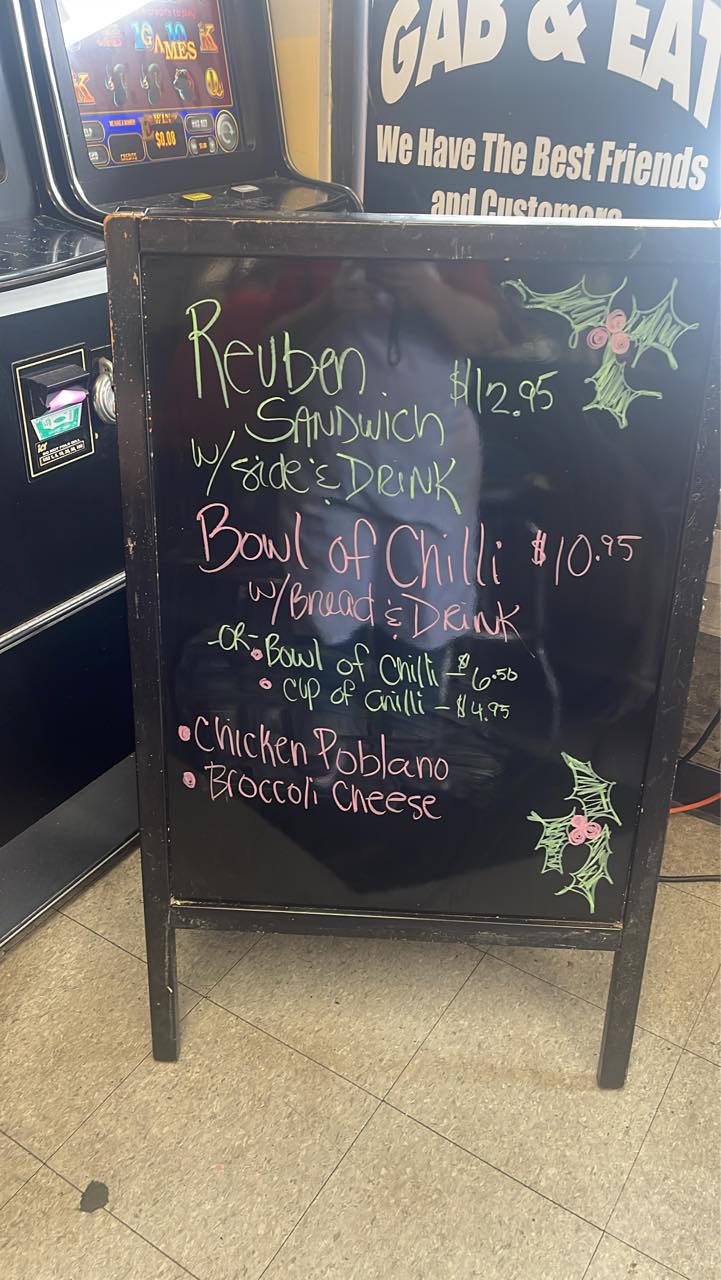 GAMES
WIN
$0.00
GAB & EAT
We Have The Best Friends
and Customers
Reuben $12.95
SANDWICH
w/ side & DRINK
Bowl of Chilli $10.95
w/ Bread & DRINK
-OR- • Bowl of Chilli - $6.50
• Cup of Chilli - $4.95
• Chicken Poblano
• Broccoli Cheese